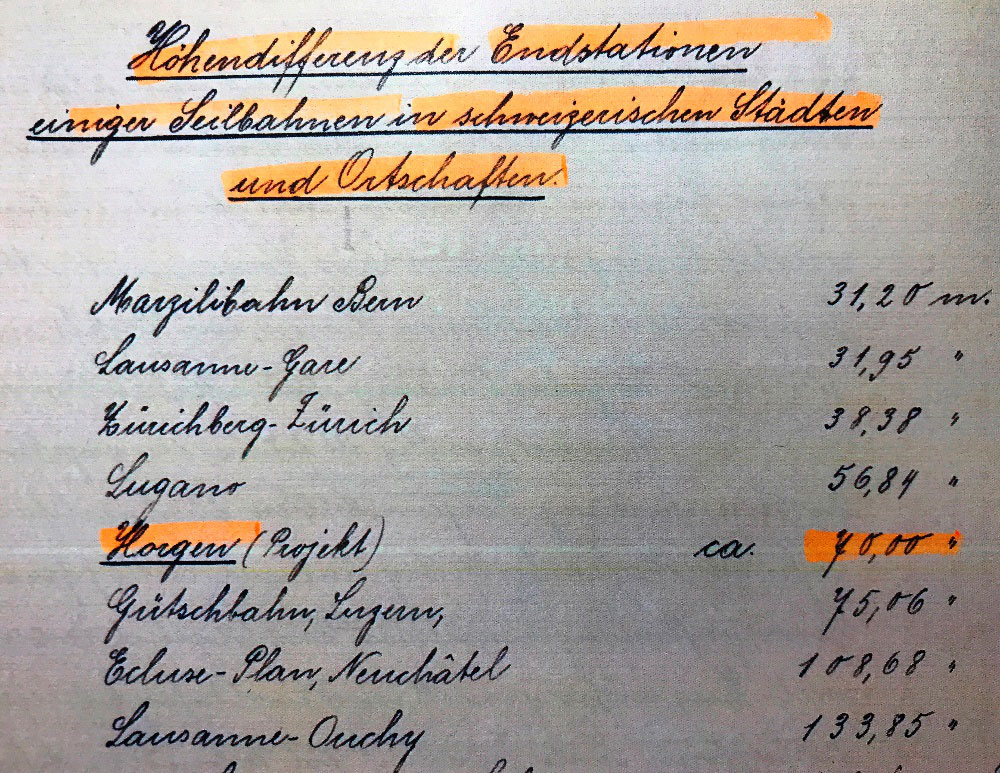 Höhendifferenz der Endstationen
einiger Seilbahnen in schweizerischen Städten
und Ortschaften.
Marzilibahn Bern 31,20 m.
Lausanne-Gare 31,95 "
Zürichberg-Zürich 38,38 "
Lugano 56,84 "
Horgen (Projekt) ca. 70,00 "
Gütschbahn, Luzern, 75,06 "
Ecluse-Plan, Neuchâtel 108,68 "
Lausanne-Ouchy 133,85 "